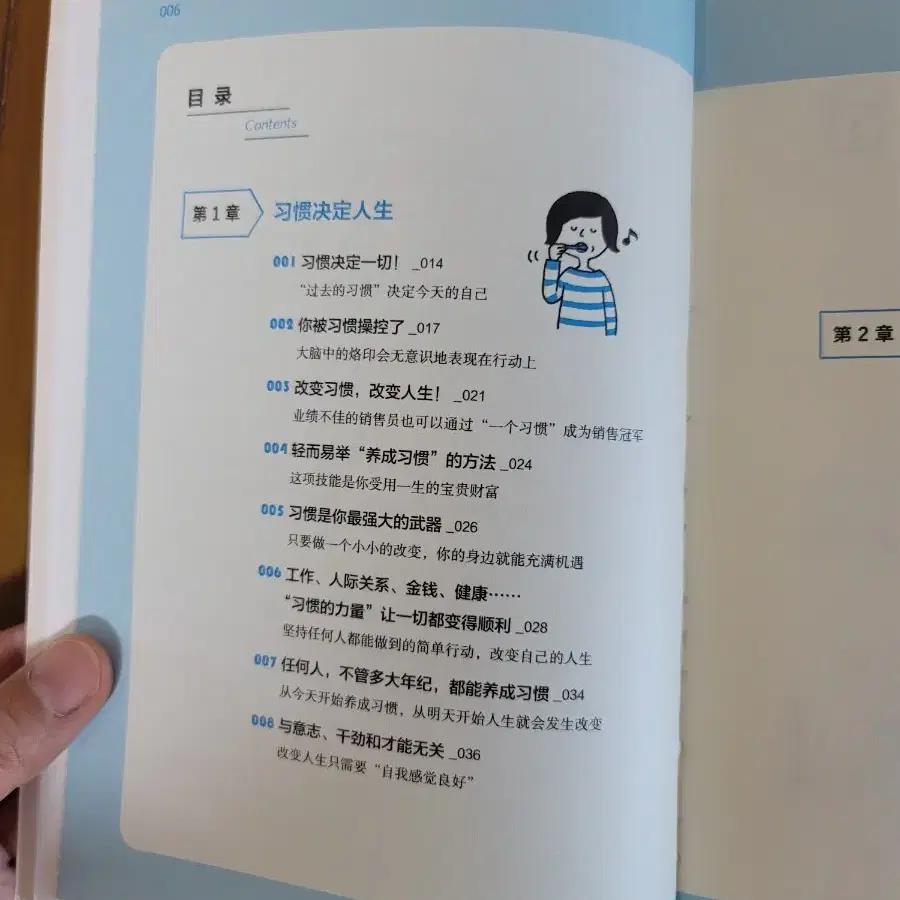 006
目录
Contents
第1章 习惯决定人生
001 习惯决定一切！ _014
“过去的习惯”决定今天的自己
002 你被习惯操控了 _017
大脑中的烙印会无意识地表现在行动上
003 改变习惯，改变人生！ _021
业绩不佳的销售员也可以通过“一个习惯”成为销售冠军
004 轻而易举“养成习惯”的方法 _024
这项技能是你受用一生的宝贵财富
005 习惯是你最强大的武器 _026
只要做一个小小的改变，你的身边就能充满机遇
006 工作、人际关系、金钱、健康……
“习惯的力量”让一切都变得顺利 _028
坚持任何人都能做到的简单行动，改变自己的人生
007 任何人，不管多大年纪，都能养成习惯 _034
从今天开始养成习惯，从明天开始人生就会发生改变
008 与意志、干劲和才能无关 _036
改变人生只需要“自我感觉良好”
第2章